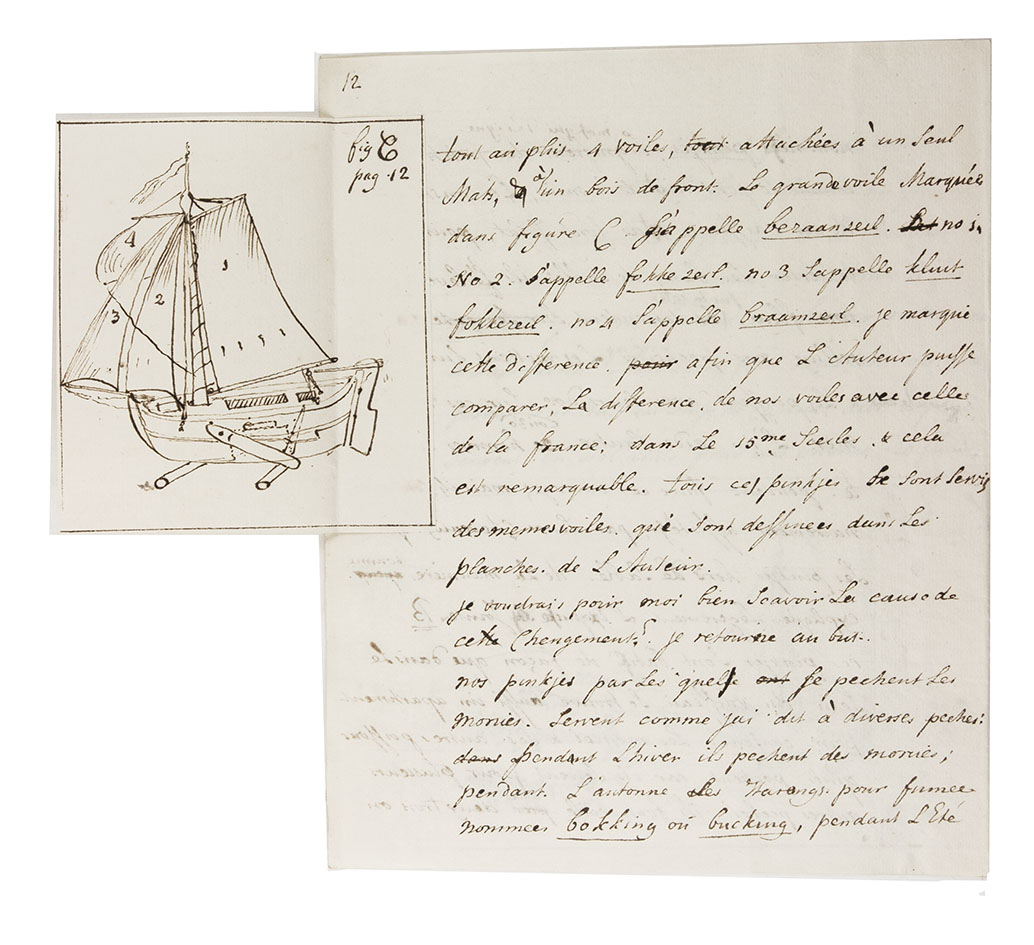 12
fig C
pag. 12
4
3
2
1
1 1 1 1
tout au plus 4 voiles, tout attachées à un seul
Mats, & à un bois de front. Le grande voile Marquées
dans figúre C s'appelle bezaanzeil. no 1.
No 2. s'appelle fokke zeil. no 3 s'appelle kluit
fokkezeil. no 4 s'appelle braamzeil. je marque
cette difference. pour afin que L'Auteur puisse
comparer, La difference. de nos voiles avec celles
de la france; dans Le 15me Siecles. & cela
est remarquable. tous ces pinkjes se sont servis
des memes voiles. que sont dessinees dans Les
planches. de L'Auteur.
je voudrais pour moi bien scavoir La cause de
cette Changement? je retourne au but.
nos pinkjes par Les quels ont se pechent Les
morues. servent comme jai dit à diverses peches:
dans pendant L'hiver ils pechent des morues;
pendant L'automne des Harengs. pour fumee
nommees bokking ou bucking, pendant L'Eté